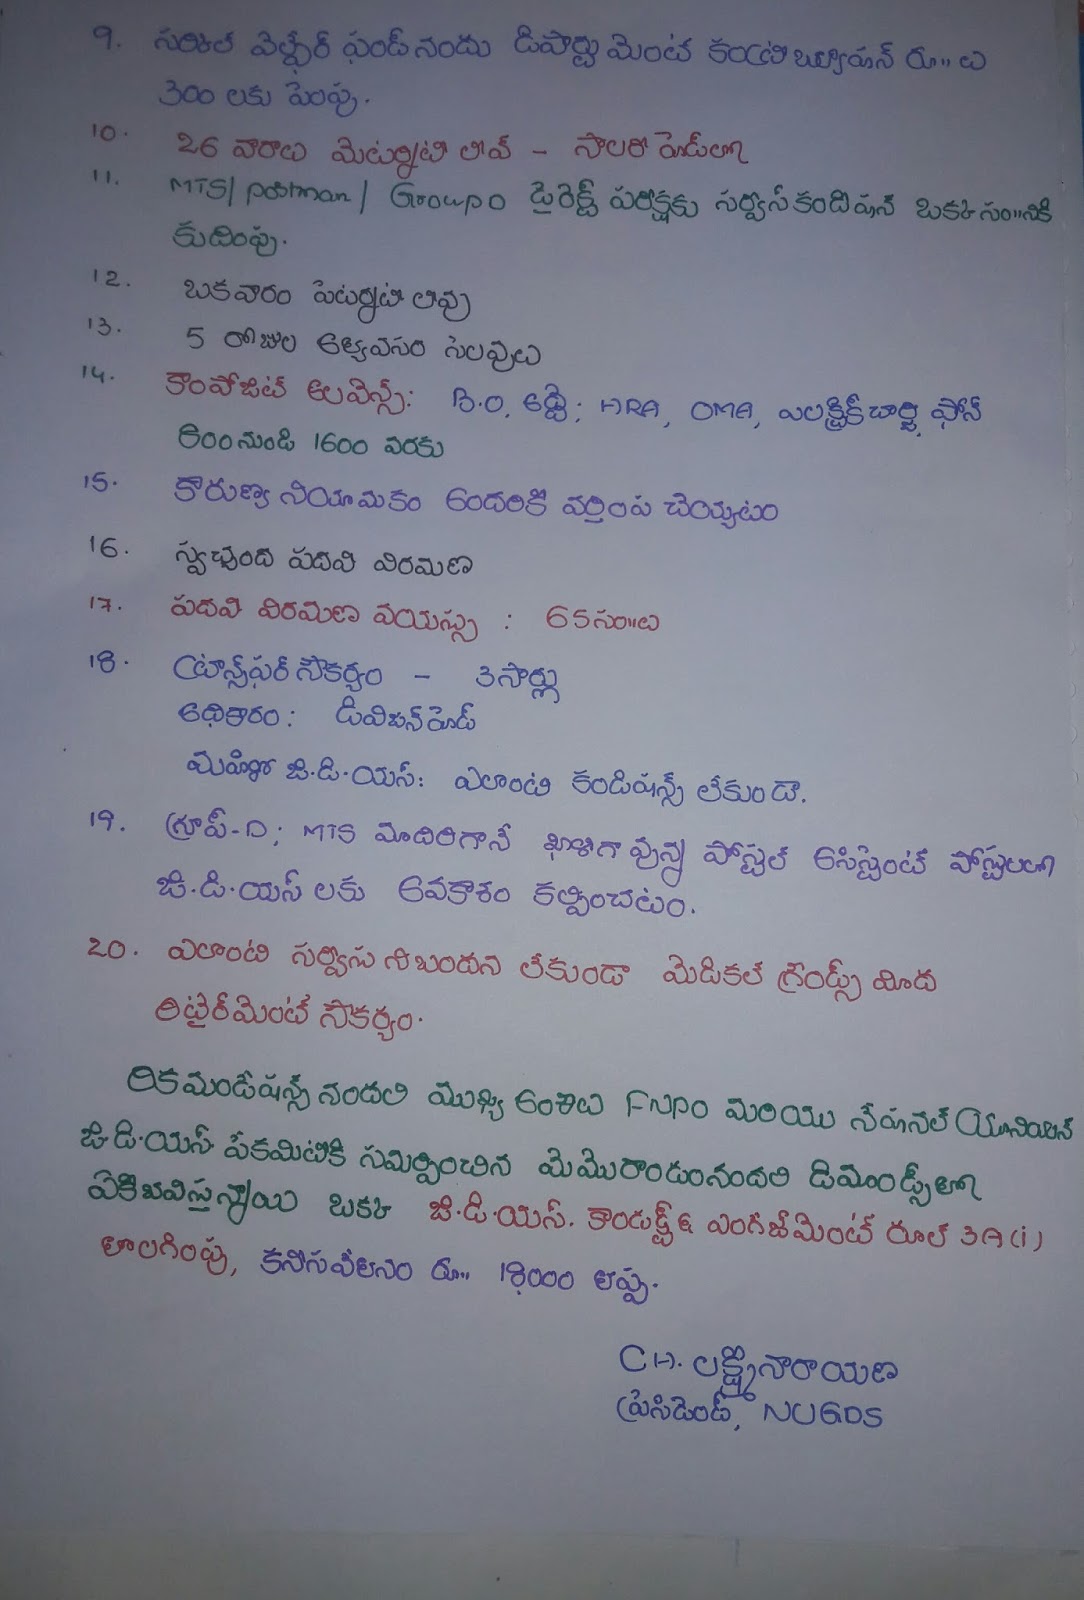 9. సర్కిల్ వెల్ఫేర్ ఫండ్ నందు డిపార్టుమెంట్ కంట్రిబ్యూషన్ రూ॥ల
300 లకు పెంపు.
10. 26 వారాలు మెటర్నిటి లీవ్ - సాలరీ హెడ్‌లో
11. MTS/ postman/ GroupD డైరెక్ట్ పరీక్షకు సర్వీస్ కండిషన్ ఒక్క సం॥నికి
కుదింపు.
12. ఒకవారం పెటర్నిటి లీవు
13. 5 రోజుల అత్యవసర సెలవులు
14. కాంపోజిట్ అలవెన్స్: B.O. అద్దె; HRA, OMA, ఎలక్ట్రిక్ చార్జి, ఫోన్
500 నుండి 1600 వరకు
15. కారుణ్య నియామకం అందరికి వర్తింప చెయ్యటం
16. స్వచ్ఛంద పదవి విరమణ
17. పదవి విరమణ వయస్సు : 65సం॥లు
18. ట్రాన్స్‌ఫర్ సౌకర్యం - 3సార్లు
అధికారం: డివిజన్ హెడ్
మహిళా జి.డి.యస్: ఎలాంటి కండిషన్స్ లేకుండా.
19. గ్రూప్-D; MTS మాదిరిగానే ఖాళీగా వున్న పోస్టల్ అసిస్టెంట్ పోస్టులలో
జి.డి.యస్ లకు అవకాశం కల్పించటం.
20. ఎలాంటి సర్వీసు నిబంధన లేకుండా మెడికల్ గ్రౌండ్స్ మీద
రిటైర్‌మెంట్ సౌకర్యం.
రికమండేషన్స్ నందలి ముఖ్య అంశాలు FNPO మరియు నేషనల్ యూనియన్
జి.డి.యస్ పేకమిటికి సమర్పించిన మెమొరాండంనందలి డిమాండ్స్‌తో
ఏకీభవిస్తున్నాయి ఒక్క జి.డి.యస్. కాండక్ట్ & ఎంగజ్‌మెంట్ రూల్ 3A(i)
తొలగింపు, కనీసవేతనం రూ॥ 18000 తప్ప.
CH. లక్ష్మీనారాయణ
ప్రెసిడెంట్, NUGDS